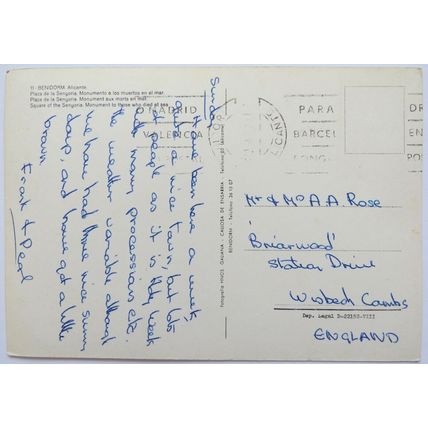 11 - BENIDORM Alicante
Plaza de la Senyoria. Monumento a los muertos en el mar.
Place de la Senyoria. Monument aux morts en mer.
Square of the Senyoria. Monument to those who died at sea.
Sunday
Have been here a week,
quite a nice town, but lots
of people as it is Holy Week
with many processions etc.
the weather variable although
we have had three nice sunny
days, and have got a little
brown
Frank & Pearl
Fotografía HNOS. GALIANA - CALLOSA DE ENSARRIA - Teléfono
BENIDORM - Teléfono
O MADRID
VALENCIA
ALICANTE
PARA
BARCEL
PONGA
DR
EN
PO
Mr & Mrs A.A. Rose
'Briarwood'
Station Drive
Wisbech Cambs
ENGLAND
Dep. Legal B-22153-VIII